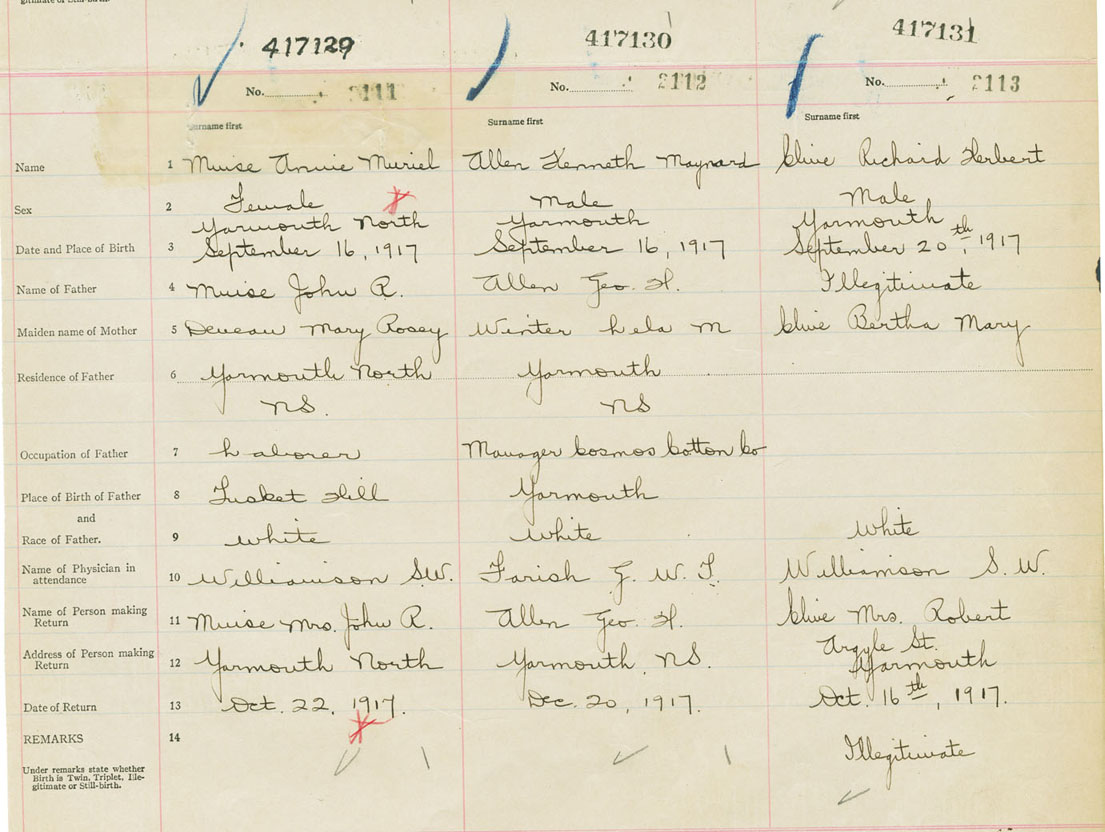 gitimate or Still-birth.
417129 417130 417131
No. 2111 No. 2112 No. 2113
Surname first Surname first Surname first
Name 1 Muise Annie Muriel Allen Kenneth Maynard Clive Richard Herbert
Sex 2 Female Male Male
Yarmouth North Yarmouth Yarmouth
Date and Place of Birth 3 September 16, 1917 September 16, 1917 September 20th, 1917
Name of Father 4 Muise John R. Allen Geo. H. Illegitimate
Maiden name of Mother 5 Deveau Mary Rosey Winter Lela M Clive Bertha Mary
Residence of Father 6 Yarmouth North Yarmouth
NS. NS
Occupation of Father 7 Laborer Manager Cosmos Cotton Co
Place of Birth of Father 8 Tusket Hill Yarmouth
and
Race of Father. 9 White White White
Name of Physician in
attendance 10 Williamson S.W. Farish G. W. T. Williamson S. W.
Name of Person making
Return 11 Muise Mrs. John R. Allen Geo. H. Clive Mrs. Robert
Argyle St.
Address of Person making
Return 12 Yarmouth North Yarmouth NS. Yarmouth
Date of Return 13 Oct. 22, 1917. Dec. 20, 1917. Oct. 16th, 1917.
REMARKS 14 Illegitimate
Under remarks state whether
Birth is Twin, Triplet, Ille-
gitimate or Still-birth.